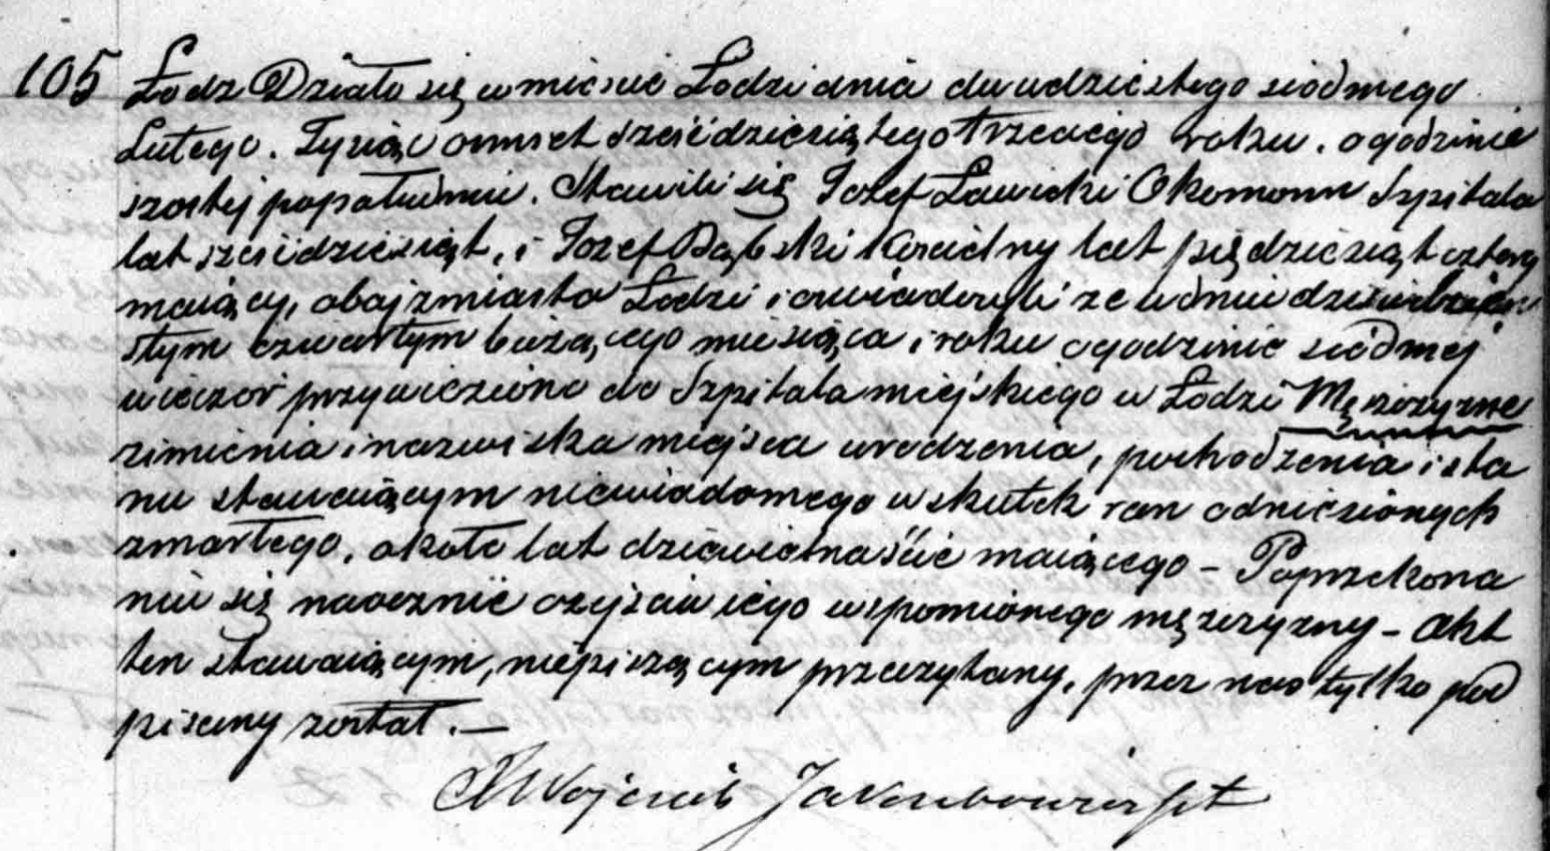 105 Łodz Działo się w mieście Łodzi dnia dwudziestego siódmego
Lutego. Tysiąc ośmset sześćdziesiątego trzeciego roku. o godzinie
szóstej popołudniu. Stawili się Jozef Ławicki Okomonn Szpitala
lat sześćdziesiąt, i Jozef Dąbski Kościelny lat pięćdziesiąt cztery
maiący, obaj z miasta Łodzi i oświadczyli że w dniu dwudzies-
stym czwartym bieżącego miesiąca i roku o godzinie siódmej
wieczór przywieziono do Szpitala miejskiego w Łodzi Męszczyznę
z imienia i nazwiska miejsca urodzenia, pochodzenia i sta
nu stawaiącym niewiadomego w skutek ran odniesionych
zmarłego, około lat dziewietnaście maiącego – Po przekona
niu się naocznie o zejściu iego wspomionego męszczyzny – Akt
ten stawaiącym, niepiszącym przeczytany, przez nas tylko pod
pisany został. —
X Wojciech Jakubowicz